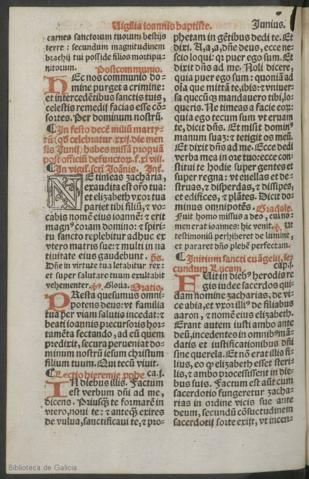 Vigilia ioannis baptiste. Junius.
carnes sanctorum tuorum bestijs
terre: secundum magnitudinem
brachij tui posside filios mortipi-
nitorum. Postcommunio.
Hec nos communio do-
mine purget a crimine:
et intercedētibus sanctis tuis,
celestis remedij faciat esse cō-
sortes. Per dominum nostrū.
In vigil. scti Joānis.
NE timeas zacharia,
exaudita est oro tua:
et elizabeth vxor tua
pariet tibi filiū, et vo-
cabis nomē eius ioannē: et erit
magn⁹ coram domino: et spiri-
tu sancto replebitur adhuc ex
vtero matris sue: et multi in na
tiuitate eius gaudebunt. ps.
Dñe in virtute tua letabitur rex:
et super salutare tuum exultabit
vehementer. Gloria. Oratio.
PResta quesumus omni-
potens deus: vt familia
tua per viam salutis incedat: et
beati ioannis precursoris hor-
tamēta sectando, ad eū quem
predixit, secura perueniat do-
minum nostrū iesum christum
filium tuum. Qui tecū viuit.
Lectio hieremie pphe ca.j.
IN diebus illis. Factum
est verbum dñi ad me,
dicens. Priusq̄ te formarē in
vtero, noui te: et anteq̄ exires
de vulua, sanctificaui te, et pro-
phetam in gētibus dedi te. Et
dixi. A,a,a, dñe deus, ecce ne-
scio loqui: quia puer ego sum. Et
dixit dñs ad me. Noli dicere,
quia puer ego sum: quoniā ad
oīa que mittā te, ibis: et vniuer-
sa quecūq̄ mandauero tibi, lo-
queris. Ne timeas a facie eorū:
quia ego tecum sum vt eruam
te, dicit dñs. Et misit dominus
manum suā: et tetigit os meū.
Et dixit dñs ad me. Ecce dedi
verba mea in ore tuo: ecce con-
stitui te hodie super gentes et
super regna: vt euellas et de-
struas, et disperdas, et dissipes,
et edifices, et plātes. Dicit do-
minus omnipotēs. Graduale.
Fuit homo missus a deo, cui no-
men erat ioannes: hic venit. Ut
testimoniū perhiberet de lumine,
et pararet dño plebē perfectam.
Initium sancti euāgelij, se-
cundum Lucam. cap.j.
FUit in dieb⁹ herodis re-
gis iudee sacerdos qui-
dam nomine zacharias, de vi-
ce abia, et vxor illi⁹ de filiabus
aaron, et nomē eius elizabeth.
Erant autem iusti ambo ante
deū, incedentes in omnib⁹ mā-
datis et iustificationibus dñi
sine querela. Et nō erat illis fi-
lius, eo q̄ elizabeth esset steri-
lis, et ambo processissent in die-
bus suis. Factum est aūt cum
sacerdotio fungeretur zacha-
rias in ordine vicis sue ante
deum, secundū cōsuetudinem
sacerdotij sorte exijt, vt incen-
Biblioteca de Galicia